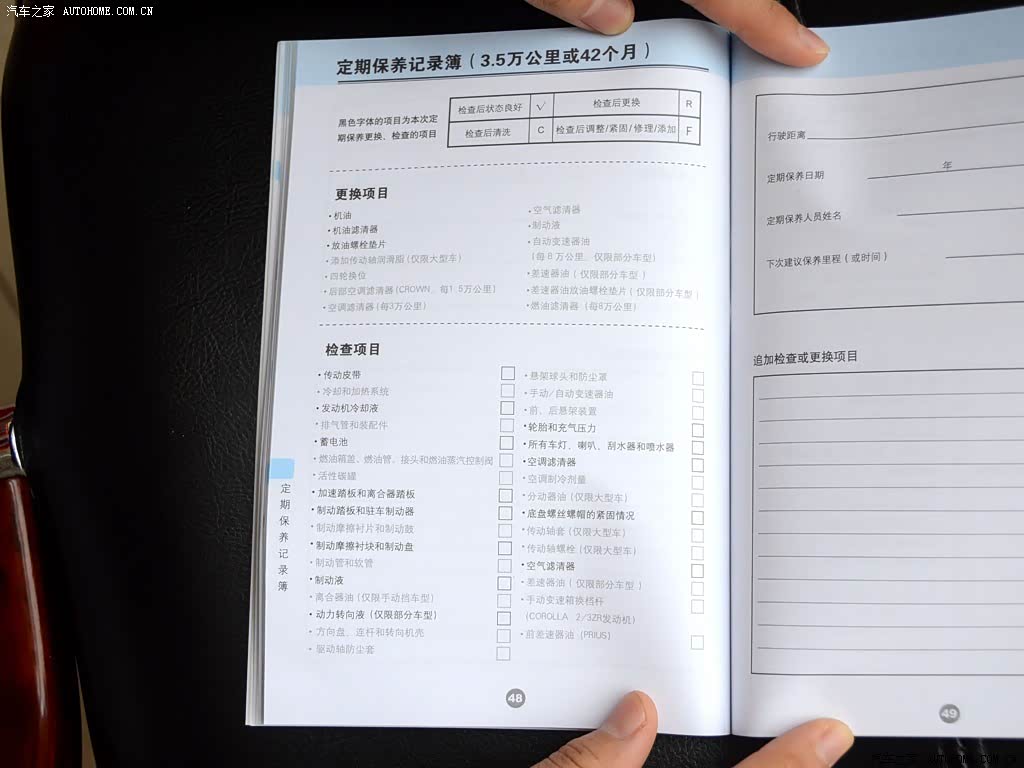 汽车之家 AUTOHOME.COM.CN
定期保养记录簿（3.5万公里或42个月）
黑色字体的项目为本次定
期保养更换、检查的项目
检查后状态良好 √ 检查后更换 R
检查后清洗 C 检查后调整/紧固/修理/添加 F
更换项目
•机油
•机油滤清器
•放油螺栓垫片
•添加传动轴润滑脂(仅限大型车)
•四轮换位
•后部空调滤清器(CROWN、每1.5万公里)
•空调滤清器(每3万公里)
•空气滤清器
•制动液
•自动变速器油
(每8万公里、仅限部分车型)
•差速器油(仅限部分车型)
•差速器油放油螺栓垫片(仅限部分车型)
•燃油滤清器（每8万公里）
检查项目
•传动皮带
•冷却和加热系统
•发动机冷却液
•排气管和装配件
•蓄电池
•燃油箱盖、燃油管、接头和燃油蒸汽控制阀
•活性碳罐
•加速踏板和离合器踏板
•制动踏板和驻车制动器
•制动摩擦衬片和制动鼓
•制动摩擦衬块和制动盘
•制动管和软管
•制动液
•离合器油(仅限手动挡车型)
•动力转向液(仅限部分车型)
•方向盘、连杆和转向机壳
•驱动轴防尘套
•悬架球头和防尘罩
•手动/自动变速器油
•前、后悬架装置
•轮胎和充气压力
•所有车灯、喇叭、刮水器和喷水器
•空调滤清器
•空调制冷剂量
•分动器油(仅限大型车)
•底盘螺丝螺帽的紧固情况
•传动轴套(仅限大型车)
•传动轴螺栓(仅限大型车)
•空气滤清器
•差速器油(仅限部分车型)
•手动变速箱换档杆
(COROLLA 2/3ZR发动机)
•前差速器油 (PRIUS)
定期保养记录簿
48
行驶距离
定期保养日期 年
定期保养人员姓名
下次建议保养里程(或时间)
追加检查或更换项目
49
汽车之家 AUTOHOME.COM.CN